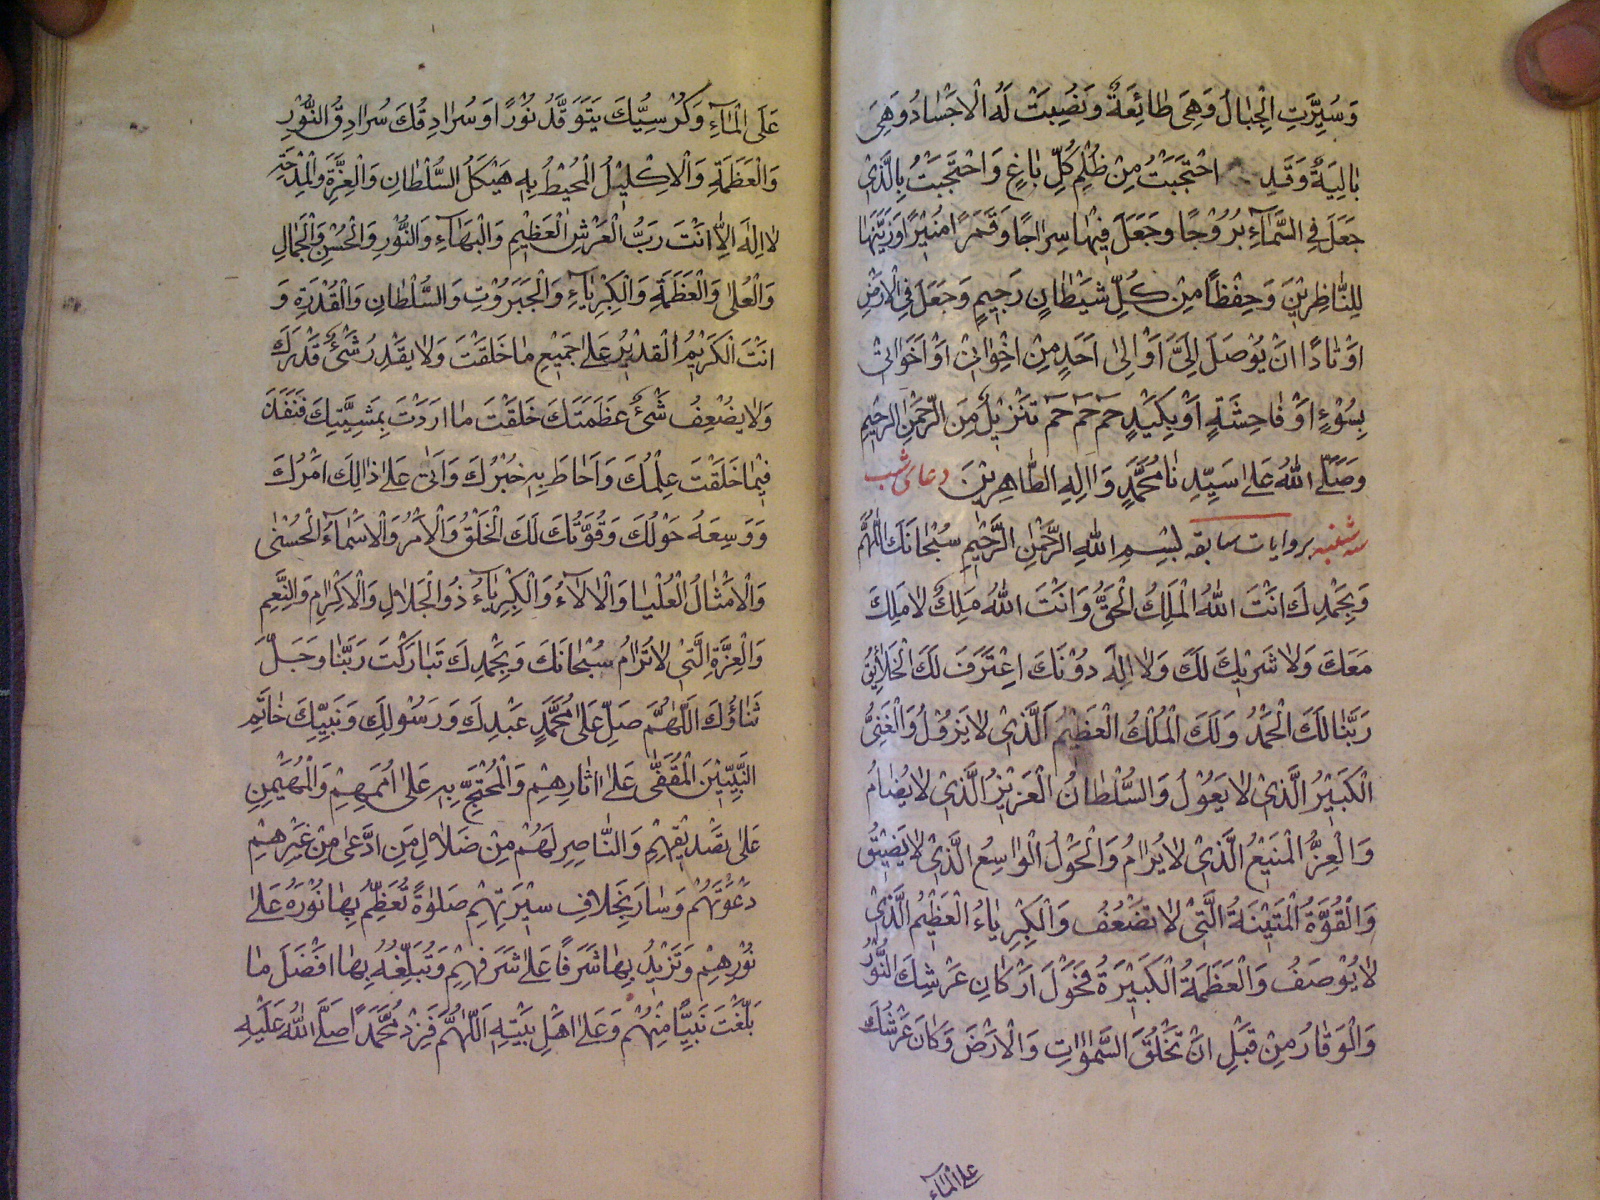 وَسُيِّرَتِ الْجِبَالُ وَهِيَ طَائِعَةٌ وَنُصِبَتْ لَهُ الْاَجْسَادُ وَهِيَ
بَالِيَةٌ وَقَدِ احْتَجَبْتُ مِنْ ظُلْمِ كُلِّ بَاغٍ وَاحْتَجَبْتُ بِالَّذِيْ
جَعَلَ فِي السَّمَآءِ بُرُوْجًا وَجَعَلَ فِيْهَا سِرَاجًا وَقَمَرًا مُنِيْرًا وَزَيَّنَهَا
لِلنَّاظِرِيْنَ وَحِفْظًا مِنْ كُلِّ شَيْطَانٍ رَجِيْمٍ وَجَعَلَ فِي الْاَرْضِ
اَوْتَادًا اَنْ يُوْصَلَ اِلَيَّ اَوْ اِلٰى اَحَدٍ مِنْ اِخْوَانِيْ اَوْ اَخَوَاتِيْ
بِسُوْءٍ اَوْ فَاحِشَةٍ اَوْ بِكَيْدٍ حٰمٓ حٰمٓ حٰمٓ تَنْزِيْلٌ مِنَ الرَّحْمٰنِ الرَّحِيْمِ
وَصَلَّى اللهُ عَلٰى سَيِّدِنَا مُحَمَّدٍ وَاٰلِهِ الطَّاهِرِيْنَ دعاى شب
سه شنبه بروايات سابقه بِسْمِ اللهِ الرَّحْمٰنِ الرَّحِيْمِ سُبْحَانَكَ اللّٰهُمَّ
وَبِحَمْدِكَ اَنْتَ اللهُ الْمَلِكُ الْحَقُّ وَاَنْتَ اللهُ مَلِكٌ لَا مَلِكَ
مَعَكَ وَلَا شَرِيْكَ لَكَ وَلَا اِلٰهَ دُوْنَكَ اعْتَرَفَ لَكَ الْخَلَايِقُ
رَبَّنَا لَكَ الْحَمْدُ وَلَكَ الْمُلْكُ الْعَظِيْمُ الَّذِيْ لَا يَزُوْلُ وَالْغَنِيُّ
الْكَبِيْرُ الَّذِيْ لَا يَعُوْلُ وَالسُّلْطَانُ الْعَزِيْزُ الَّذِيْ لَا يُضَامُ
وَالْعِزُّ الْمَنِيْعُ الَّذِيْ لَا يُرَامُ وَالْحَوْلُ الْوَاسِعُ الَّذِيْ لَا يَضِيْقُ
وَالْقُوَّةُ الْمَتِيْنَةُ الَّتِيْ لَا تَضْعُفُ وَالْكِبْرِيَاءُ الْعَظِيْمُ الَّذِيْ
لَا يُوْصَفُ وَالْعَظَمَةُ الْكَبِيْرَةُ فَحَوْلَ اَرْكَانِ عَرْشِكَ النُّوْرُ
وَالْوَقَارُ مِنْ قَبْلِ اَنْ تَخْلُقَ السَّمٰوَاتِ وَالْاَرْضَ وَكَانَ عَرْشُكَ
على الماء
عَلَى الْمَآءِ وَكُرْسِيُّكَ يَتَوَقَّدُ نُوْرًا وَسُرَادِقُكَ سُرَادِقُ النُّوْرِ
وَالْعَظَمَةِ وَالْاِكْلِيْلُ الْمُحِيْطُ بِهِ هَيْكَلُ السُّلْطَانِ وَالْعِزَّةِ وَالْمِدْحَةِ
لَا اِلٰهَ اِلَّا اَنْتَ رَبُّ الْعَرْشِ الْعَظِيْمِ وَالْبَهَآءِ وَالنُّوْرِ وَالْحُسْنِ وَالْجَمَالِ
وَالْعُلٰى وَالْعَظَمَةِ وَالْكِبْرِيَآءِ وَالْجَبَرُوْتِ وَالسُّلْطَانِ وَالْقُدْرَةِ وَ
اَنْتَ الْكَرِيْمُ الْقَدِيْرُ عَلٰى جَمِيْعِ مَا خَلَقْتَ وَلَا يَقْدِرُ شَيْءٌ قَدْرَكَ
وَلَا يُضْعِفُ شَيْءٌ عَظَمَتَكَ خَلَقْتَ مَا اَرَدْتَ بِمَشِيَّتِكَ فَنَفَذَ
فِيْمَا خَلَقْتَ عِلْمُكَ وَاَحَاطَ بِهِ خُبْرُكَ وَاَتٰى عَلٰى ذَالِكَ اَمْرُكَ
وَوَسِعَهُ حَوْلُكَ وَقُوَّتُكَ لَكَ الْخَلْقُ وَالْاَمْرُ وَالْاَسْمَآءُ الْحُسْنٰى
وَالْاَمْثَالُ الْعُلْيَا وَالْاٰلَآءُ وَالْكِبْرِيَآءُ ذُو الْجَلَالِ وَالْاِكْرَامِ وَالنِّعَمِ
وَالْعِزَّةِ الَّتِيْ لَا تُرَامُ سُبْحَانَكَ وَبِحَمْدِكَ تَبَارَكْتَ رَبَّنَا وَجَلَّ
ثَنَاؤُكَ اَللّٰهُمَّ صَلِّ عَلٰى مُحَمَّدٍ عَبْدِكَ وَرَسُوْلِكَ وَنَبِيِّكَ خَاتَمِ
النَّبِيِّيْنَ الْمُقَفّٰى عَلٰى اٰثَارِهِمْ وَالْمُحْتَجِّ بِهِ عَلٰى اُمَمِهِمْ وَالْمُهَيْمِنِ
عَلٰى تَصْدِيْقِهِمْ وَالنَّاصِرِ لَهُمْ مِنْ ضَلَالِ مَنِ ادَّعٰى مِنْ غَيْرِهِمْ
دَعْوَتَهُمْ وَسَارَ بِخِلَافِ سِيْرَتِهِمْ صَلٰوةً تُعَظِّمُ بِهَا نُوْرَهُ عَلٰى
نُوْرِهِمْ وَتَزِيْدُ بِهَا شَرَفًا عَلٰى شَرَفِهِمْ وَتُبَلِّغُهُ بِهَا اَفْضَلَ مَا
بَلَّغْتَ نَبِيًّا مِنْهُمْ وَعَلٰى اَهْلِ بَيْتِهِ اَللّٰهُمَّ فَزِدْ مُحَمَّدًا صَلَّى اللهُ عَلَيْهِ